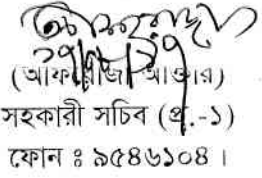 (আফরোজা আক্তার)
সহকারী সচিব (প্র.-১)
ফোন ঃ ৯৫৪৬১০৪ ।